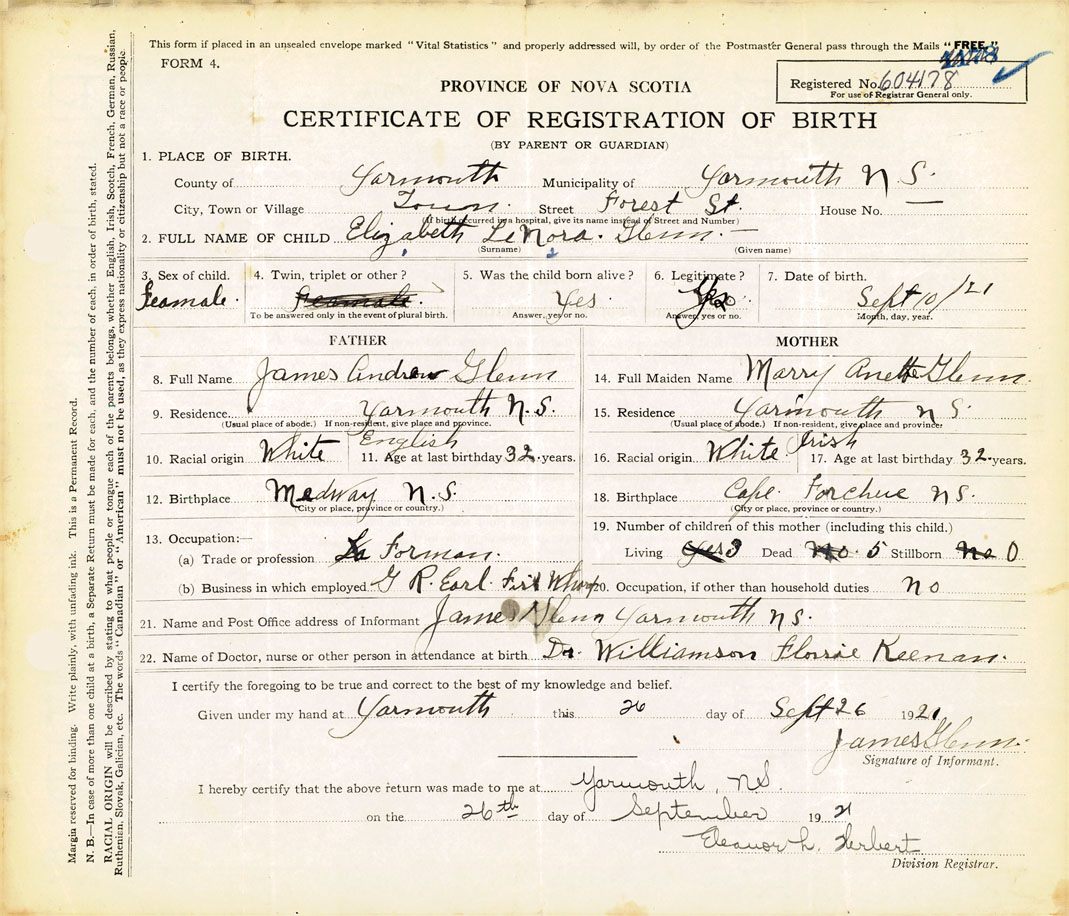 This form if placed in an unsealed envelope marked "Vital Statistics" and properly addressed will, by order of the Postmaster General pass through the Mails "FREE."
FORM 4.
Registered No. 604178
For use of Registrar General only.
PROVINCE OF NOVA SCOTIA
CERTIFICATE OF REGISTRATION OF BIRTH
(BY PARENT OR GUARDIAN)
1. PLACE OF BIRTH.
County of Yarmouth Municipality of Yarmouth N.S.
City, Town or Village Town. Street Forest St. House No. —
(If birth occurred in a hospital, give its name instead of Street and Number)
2. FULL NAME OF CHILD Elizabeth LeNora. Glenn. —
(Surname) (Given name)
3. Sex of child. 4. Twin, triplet or other? 5. Was the child born alive? 6. Legitimate? 7. Date of birth.
Feamale. Feamale. Yes Yes Sept 10/21
To be answered only in the event of plural birth. Answer, yes or no. Answer, yes or no. Month, day, year.
FATHER MOTHER
8. Full Name James Andrew Glenn 14. Full Maiden Name Marry Anette Glenn.
9. Residence. Yarmouth N.S. 15. Residence Yarmouth N S.
(Usual place of abode.) If non-resident, give place and province. (Usual place of abode.) If non-resident, give place and province.
10. Racial origin White English 11. Age at last birthday 32. years. 16. Racial origin White Irish 17. Age at last birthday 32. years.
12. Birthplace Medway N.S. 18. Birthplace Cape Forchue N S.
(City or place, province or country.) (City or place, province or country.)
13. Occupation:— 19. Number of children of this mother (including this child.)
(a) Trade or profession Forman. Living yes 3 Dead No. 5 Stillborn no 0
(b) Business in which employed G R. Earl. Fish Wharf 20. Occupation, if other than household duties no
21. Name and Post Office address of Informant James Glenn Yarmouth N S.
22. Name of Doctor, nurse or other person in attendance at birth Dr. Williamson Florrie Keenan.
I certify the foregoing to be true and correct to the best of my knowledge and belief.
Given under my hand at Yarmouth this 26 day of Sept 26 1921
James Glenn.
Signature of Informant.
I hereby certify that the above return was made to me at Yarmouth, NS.
on the 26th day of September 19 21
Eleanor L. Herbert
Division Registrar.
Margin reserved for binding. Write plainly, with unfading ink. This is a Permanent Record.
N. B.—In case of more than one child at a birth, a Separate Return must be made for each, and the number of each, in order of birth, stated.
RACIAL ORIGIN will be described by stating to what people or tongue each of the parents belongs, whether English, Irish, Scotch, French, German, Russian,
Ruthenian, Slovak, Galician, etc. The words "Canadian" or "American" must not be used, as they express nationality or citizenship but not a race or people.